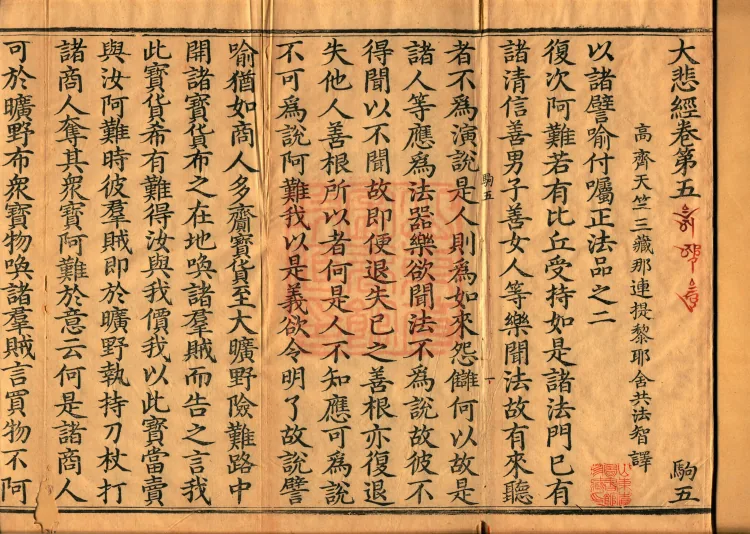 大悲經卷第五 駒五
高齊天竺三藏那連提黎耶舍共法智譯
以諸譬喻付囑正法品之二
復次阿難若有比丘受持如是諸法門已有
諸清信善男子善女人等樂聞法故有來聽
駒五
者不爲演說是人則爲如來怨讎何以故是
諸人等應爲法器樂欲聞法不爲說故彼不
得聞以不聞故即便退失已之善根亦復退
失他人善根所以者何是人不知應可爲說
不可爲說阿難我以是義欲令明了故說譬
喻猶如商人多齎寶貨至大曠野險難路中
開諸寶貨布之在地喚諸羣賊而告之言我
此寶貨希有難得汝與我價我以此寶當賣
與汝阿難時彼羣賊即於曠野執持刀杖打
諸商人奪其衆寶阿難於意云何是諸商人
可於曠野布衆寶物喚諸羣賊言買物不阿